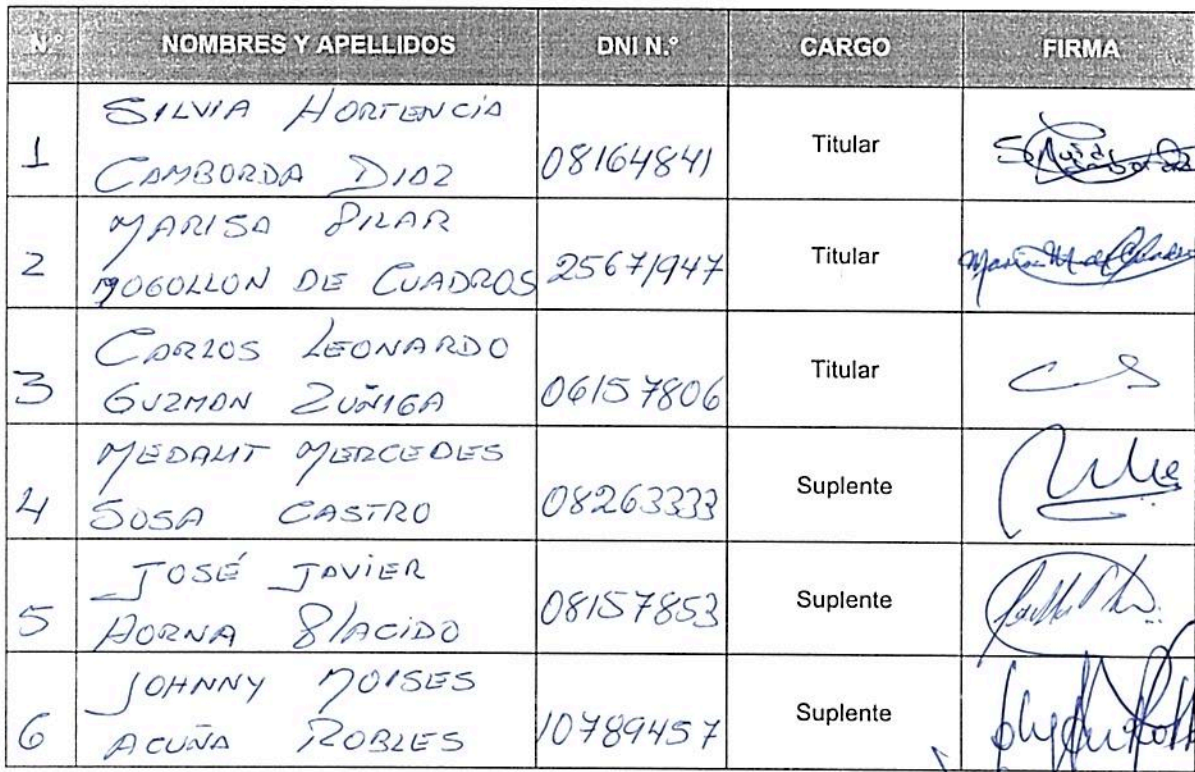 N.° NOMBRES Y APELLIDOS DNI N.° CARGO FIRMA
SILVIA HORTENCIA
1 CAMBORDA DIAZ 08164841 Titular
MARISA PILAR
2 MOGOLLON DE CUADROS 25671947 Titular
CARLOS LEONARDO
3 GUZMAN ZUÑIGA 06157806 Titular
MERCEDES
4 SOSA CASTRO 08263333 Suplente
JOSÉ JAVIER
5 HORNA PLACIDO 08157853 Suplente
JOHNNY MOISES
6 ACUÑA ROBLES 10789457 Suplente